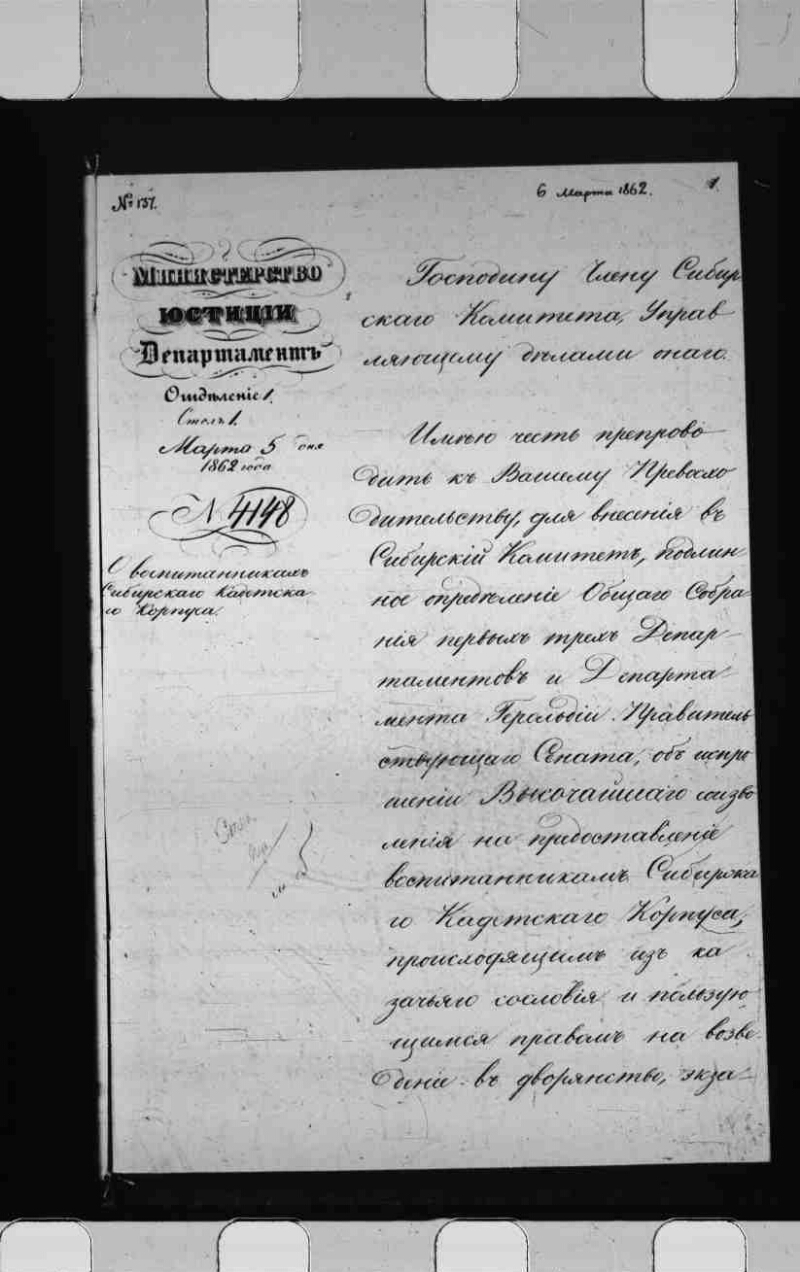 № 137.
6 Марта 1862.
1.
МИНИСТЕРСТВО
ЮСТИЦІИ
Департаментъ
Отдѣленіе 1.
Столъ 1.
Марта 5 дня
1862 года
№ 4148
О воспитанникахъ
Сибирскаго Кадетска
го Корпуса.
Господину Члену Сибир
скаго Комитета, Управ
ляющему дѣлами онаго.
Имѣю честь препрово
дить къ Вашему Превосхо
дительству, для внесенія въ
Сибирскій Комитетъ, подлин
ное опредѣленіе Общаго Собра
нія первыхъ трехъ Депар-
таментовъ и Департа
мента Герольдіи Правитель
ствующаго Сената, объ испро
шеніи Высочайшаго соизво
ленія на предоставленіе
воспитанникамъ Сибирска
го Кадетскаго Корпуса,
происходящимъ изъ ка
зачьяго сословія и пользую
щимся правомъ на возве
деніе въ дворянство, экза-